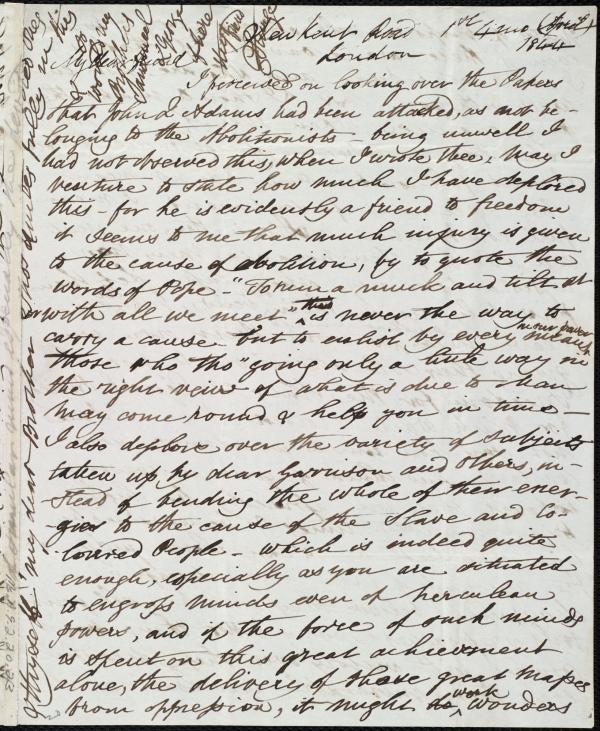 New Kent Road 1st 4 mo (April)
London 1844
My dear
I perceived on looking over the Papers
that John Q Adams had been attacked, as not be-
longing to the Abolitionists - being unwell I
had not observed this, when I wrote thee; May I
venture to state how much I have deplored
this - for he is evidently a friend to freedom
it seems to me that much injury is given
to the cause of abolition, by to quote the
words of Pope "To run a muck and tilt at
with all we meet" this is never the way to
carry a cause but to enlist by every means in our power
those who tho' going only a little way in
the right view of what is due to Man
may come round & help you in time -
I also deplore over the variety of subjects
taken up by dear Garrison and others, in-
stead of bending the whole of their ener-
-gies to the cause of the Slave and Co-
-loured People - which is indeed quite
enough, especially as you are situated
to engross minds even of herculean
powers, and if the force of such minds
is spent on this great achievement
alone, the delivery of these great masses
from oppression, it might work wonders
& thyself my dear Brother